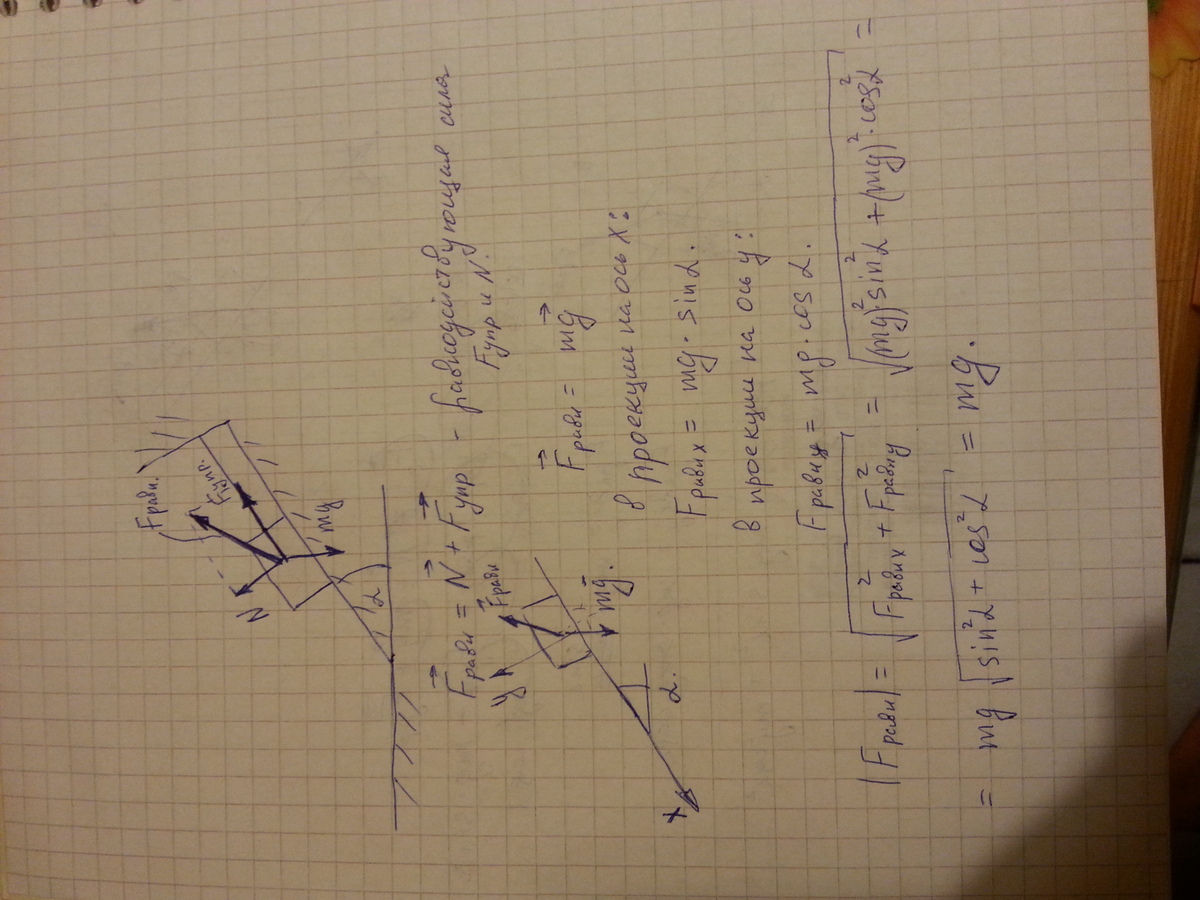 Fравн.
N
Fупр.
mg
α
F⃗равн = N⃗ + F⃗упр - равнодействующая силы
Fупр и N.
y
F⃗равн
mg⃗.
α.
x
F⃗равн = mg⃗
в проекции на ось x:
Fравн x = mg · sin α.
в проекции на ось y:
Fравн y = mg · cos α.
|Fравн| = √(F²равн x + F²равн y) = √((mg)² · sin²α + (mg)² · cos²α) =
= mg √(sin²α + cos²α) = mg.